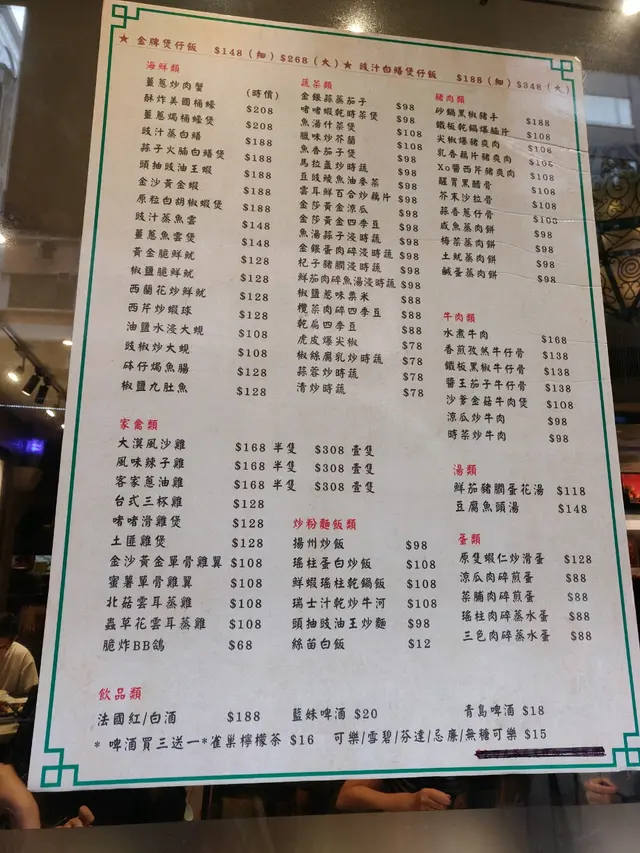 ★ 金牌煲仔飯 $148(細)$268(大)★ 豉汁白鱔煲仔飯 $188(細)$348(大)
海鮮類
薑蔥炒肉蟹 (時價)
酥炸美國桶蠔 $208
薑蔥焗桶蠔煲 $208
豉汁蒸白鱔 $188
蒜子火腩白鱔煲 $188
頭抽豉油王蝦 $188
金沙黃金蝦 $188
原粒白胡椒蝦煲 $188
豉汁蒸魚雲 $148
薑蔥魚雲煲 $148
黃金脆鮮魷 $128
椒鹽脆鮮魷 $128
西蘭花炒鮮魷 $128
西芹炒蝦球 $128
油鹽水浸大蜆 $108
豉椒炒大蜆 $108
砵仔焗魚腸 $128
椒鹽九肚魚 $128
蔬菜類
金銀蒜蒸茄子 $98
啫啫蝦乾時菜煲 $98
魚湯什菜煲 $108
臘味炒芥蘭 $108
魚香茄子煲 $98
馬拉盞炒時蔬 $98
豆豉鯪魚油麥菜 $98
雲耳鮮百合炒藕片 $98
金莎黃金涼瓜 $98
金莎黃金四季豆 $98
魚湯蒜子浸時蔬 $98
金銀蛋肉碎浸時蔬 $98
杞子豬膶浸時蔬 $98
鮮茄肉碎魚湯浸時蔬 $98
椒鹽蔥味粟米 $88
欖菜肉碎四季豆 $88
乾扁四季豆 $88
虎皮爆尖椒 $78
椒絲腐乳炒時蔬 $78
蒜蓉炒時蔬 $78
清炒時蔬 $78
豬肉類
砂鍋黑椒豬手 $188
鐵板乾鍋爆腩片 $108
尖椒爆豬爽肉 $108
乳香藕片豬爽肉 $108
Xo醬西芹豬爽肉 $108
醒胃黑醋骨 $108
芥末沙拉骨 $108
蒜香蔥仔骨 $108
咸魚蒸肉餅 $98
梅菜蒸肉餅 $98
土魷蒸肉餅 $98
鹹蛋蒸肉餅 $98
牛肉類
水煮牛肉 $168
香煎孜然牛仔骨 $138
鐵板黑椒牛仔骨 $138
醬王茄子牛仔骨 $138
沙爹金菇牛肉煲 $108
涼瓜炒牛肉 $98
時菜炒牛肉 $98
家禽類
大漠風沙雞 $168 半隻 $308 壹隻
風味辣子雞 $168 半隻 $308 壹隻
客家蔥油雞 $168 半隻 $308 壹隻
台式三杯雞 $128
啫啫滑雞煲 $128
土匪雞煲 $128
金沙黃金單骨雞翼 $108
蜜薯單骨雞翼 $108
北菇雲耳蒸雞 $108
蟲草花雲耳蒸雞 $108
脆炸BB鴿 $68
炒粉麵飯類
揚州炒飯 $98
瑤柱蛋白炒飯 $108
鮮蝦瑤柱乾鍋飯 $108
瑞士汁乾炒牛河 $108
頭抽豉油王炒麵 $98
絲苗白飯 $12
湯類
鮮茄豬膶蛋花湯 $118
豆腐魚頭湯 $148
蛋類
原隻蝦仁炒滑蛋 $128
涼瓜肉碎煎蛋 $88
菜脯肉碎煎蛋 $88
瑤柱肉碎蒸水蛋 $88
三色肉碎蒸水蛋 $88
飲品類
法國紅/白酒 $188 藍妹啤酒 $20 青島啤酒 $18
* 啤酒買三送一*雀巢檸檬茶 $16 可樂/雪碧/芬達/忌廉/無糖可樂 $15